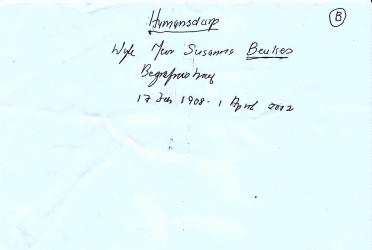 B
Humansdorp
Wyle Mev Susanna Beukes
Begrafnisbrief
17 Jan 1908 - 1 April 2002